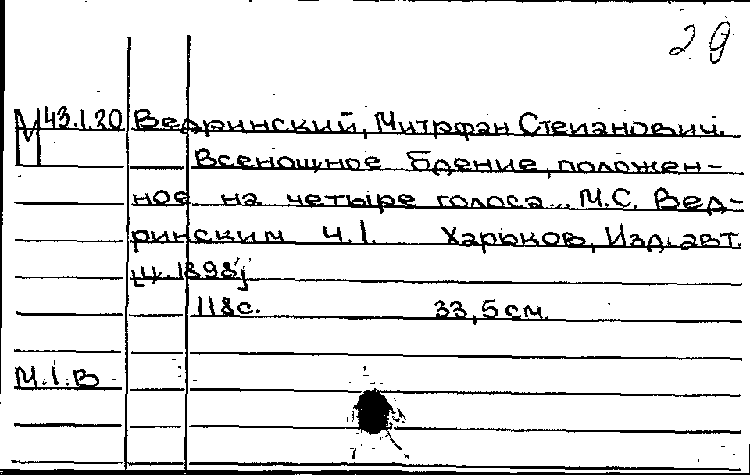 29
М 43.1.20 Ведринский, Митрфан Степанович.
Всенощное бдение, положен-
ное на четыре голоса... М.С. Вед-
ринским Ч.1. Харьков, Изд. авт.
[ц. 1898]
118с. 33,5 см.
М.1.В